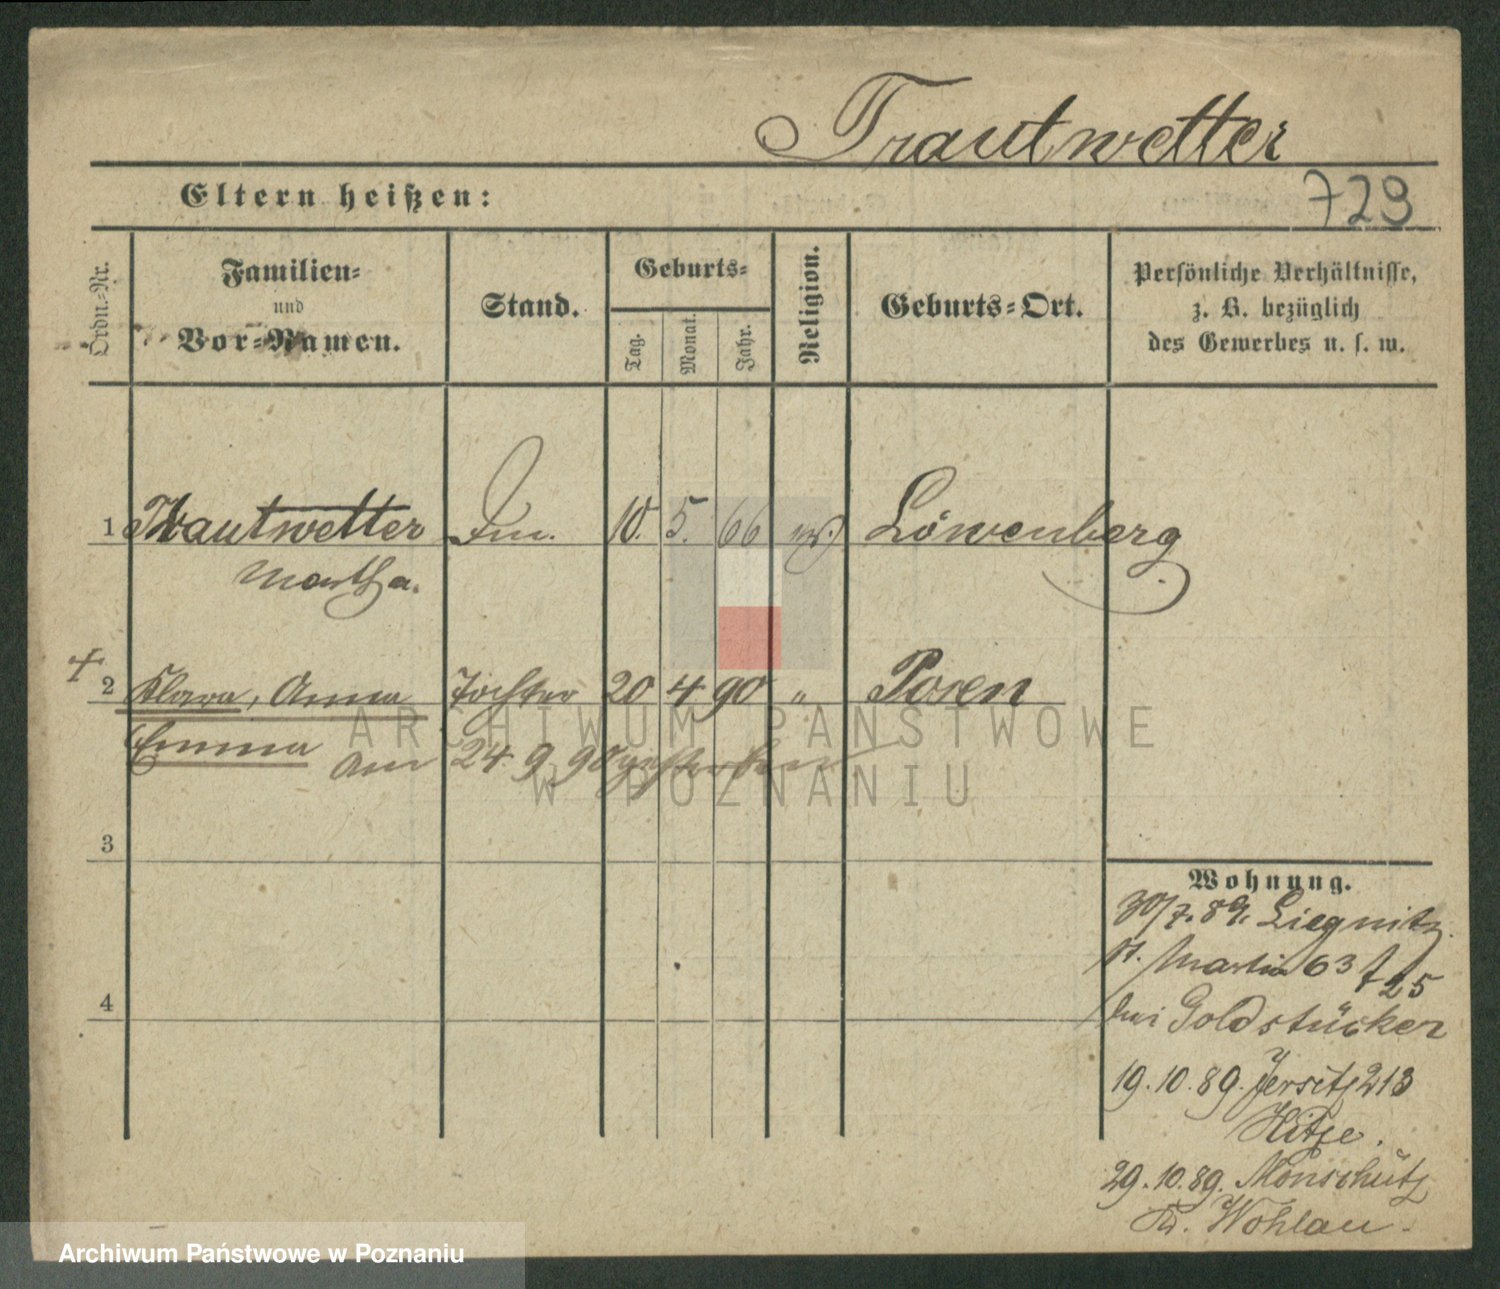 Trautwetter
Eltern heißen:
729
Ordn.-Nr.
Familien-
und
Vor-Namen.
Stand.
Geburts-
Tag.
Monat.
Jahr.
Religion.
Geburts-Ort.
Persönliche Verhältnisse,
z. B. bezüglich
des Gewerbes u. s. w.
1 Trautwetter 10. 5. 66 Löwenberg
Martha.
+
2 Klara, Anna Tochter 20 4 90 " Posen
Emma am 24 9 90 gestorben
ARCHIWUM PAŃSTWOWE
W POZNANIU
3
Wohnung.
30/7. 89. Liegnitz
St. Martin 63 t 25
bei Goldstücker
4
19.10.89. Jersitz 213
Hitze.
29.10.89. Monschütz
Kr. Wohlau.
Archiwum Państwowe w Poznaniu